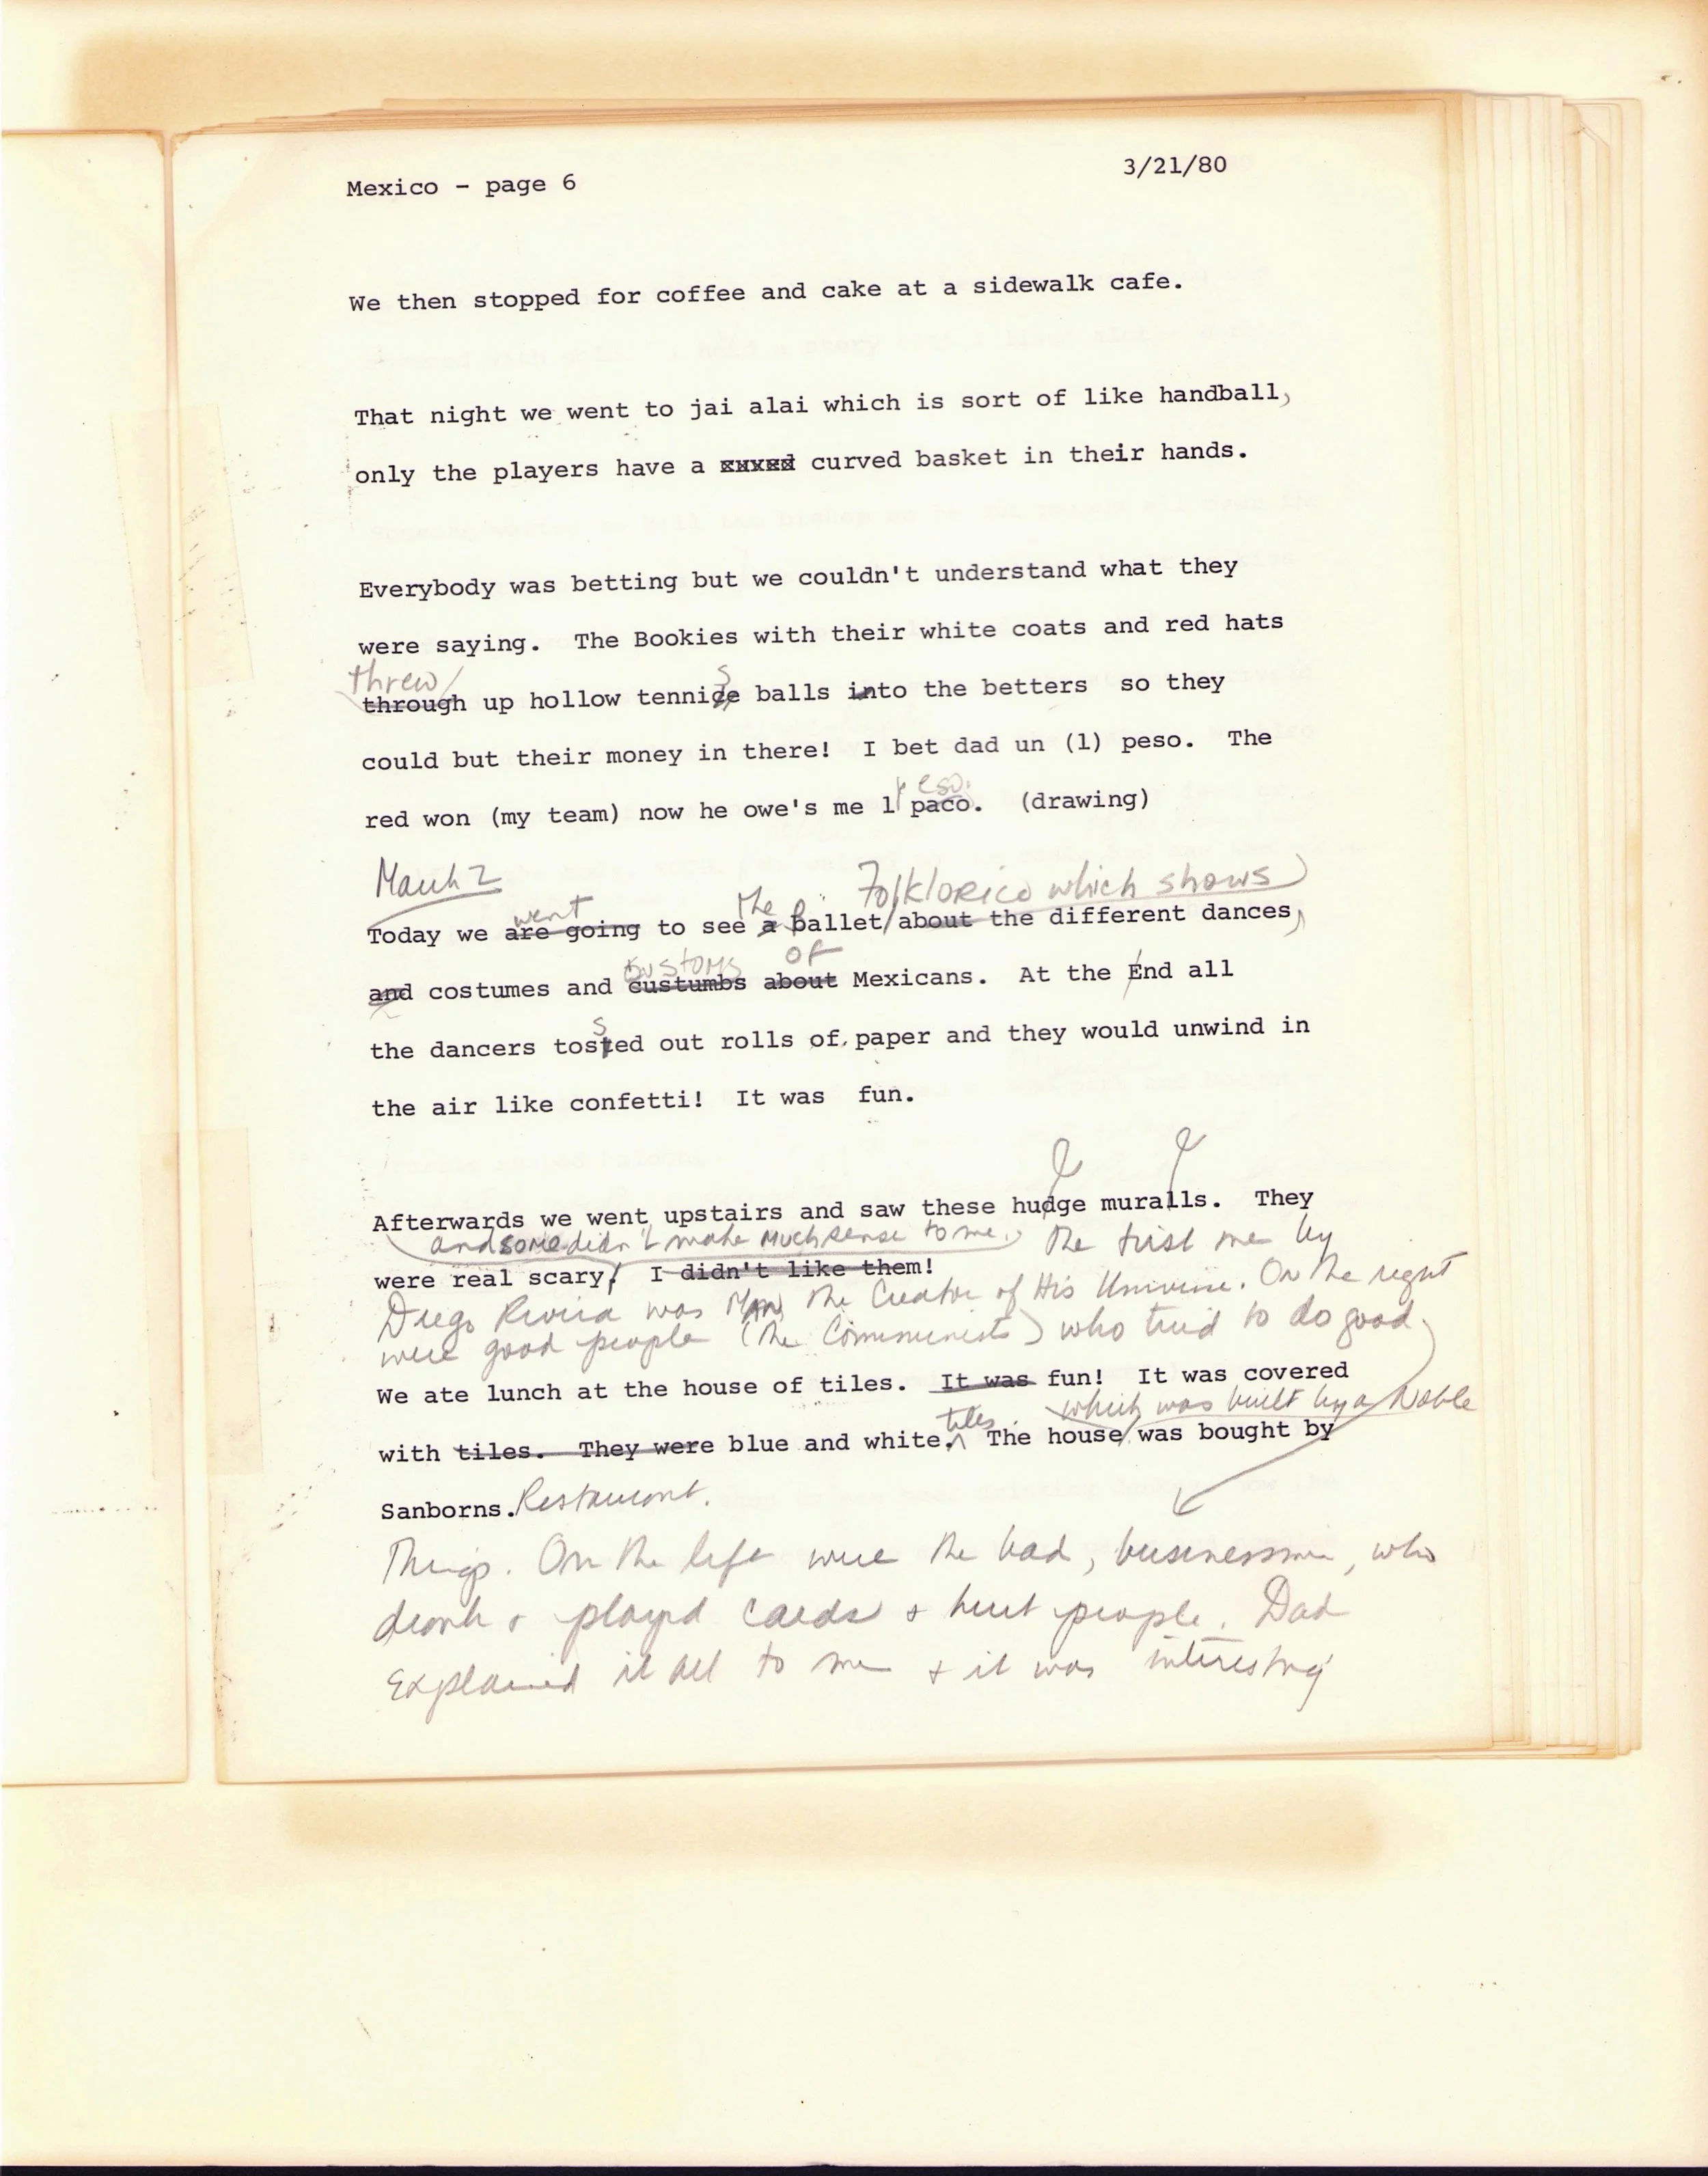 Mexico - page 6
3/21/80
We then stopped for coffee and cake at a sidewalk cafe.
That night we went to jai alai which is sort of like handball,
only the players have a curved basket in their hands.
Everybody was betting but we couldn't understand what they
were saying. The Bookies with their white coats and red hats
threw
through up hollow tennice balls into the betters so they
s
could but their money in there! I bet dad un (1) peso. The
eso.
red won (my team) now he owe's me 1 paco. (drawing)
March 2
went the B Folklorico which shows
Today we are going to see a ballet about the different dances,
customs of
and costumes and custumbs about Mexicans. At the End all
s
the dancers tosted out rolls of paper and they would unwind in
the air like confetti! It was fun.
Afterwards we went upstairs and saw these hudge muralls. They
and some didn't make much sense to me. The first one by
were real scary! I didn't like them!
Diego Rivera was Man, the Creator of His Universe. On the right
were good people (the Communists) who tried to do good
We ate lunch at the house of tiles. It was fun! It was covered
tiles. which was built by a Noble
with tiles. They were blue and white. The house was bought by
Sanborns. Restaurant.
Things. On the left were the bad, businessmen, who
drank + played cards + hurt people. Dad
Explained it all to me + it was interesting